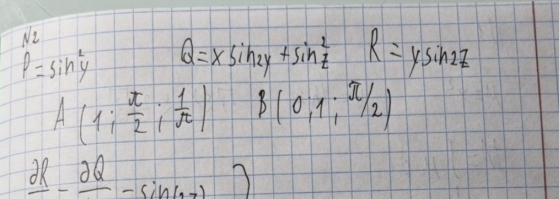 N2
P = sin²y Q = x sin2y + sin²z R = y sin2z
A (1; π/2; 1/π) B (0, 1; π/2)
∂R - ∂Q - sin(2z) }